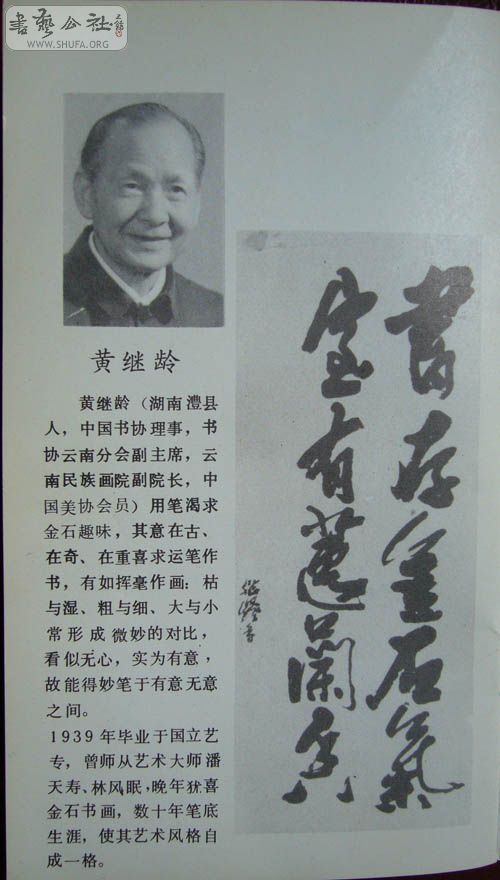 書藝公社
WWW.SHUFA.ORG
黄继龄
黄继龄（湖南澧县
人，中国书协理事，书
协云南分会副主席，云
南民族画院副院长，中
国美协会员）用笔渴求
金石趣味，其意在古、
在奇、在重喜求运笔作
书，有如挥毫作画：枯
与湿、粗与细、大与小
常形成微妙的对比，
看似无心，实为有意，
故能得妙笔于有意无意
之间。
1939年毕业于国立艺
专，曾师从艺术大师潘
天寿、林风眠，晚年犹喜
金石书画，数十年笔底
生涯，使其艺术风格自
成一格。
書存金石氣
室有蕙蘭香
继龄書